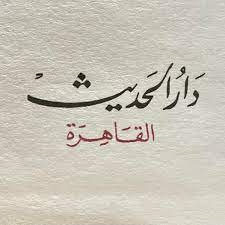 دَارُ الحَدِيث
القَاهِرَة